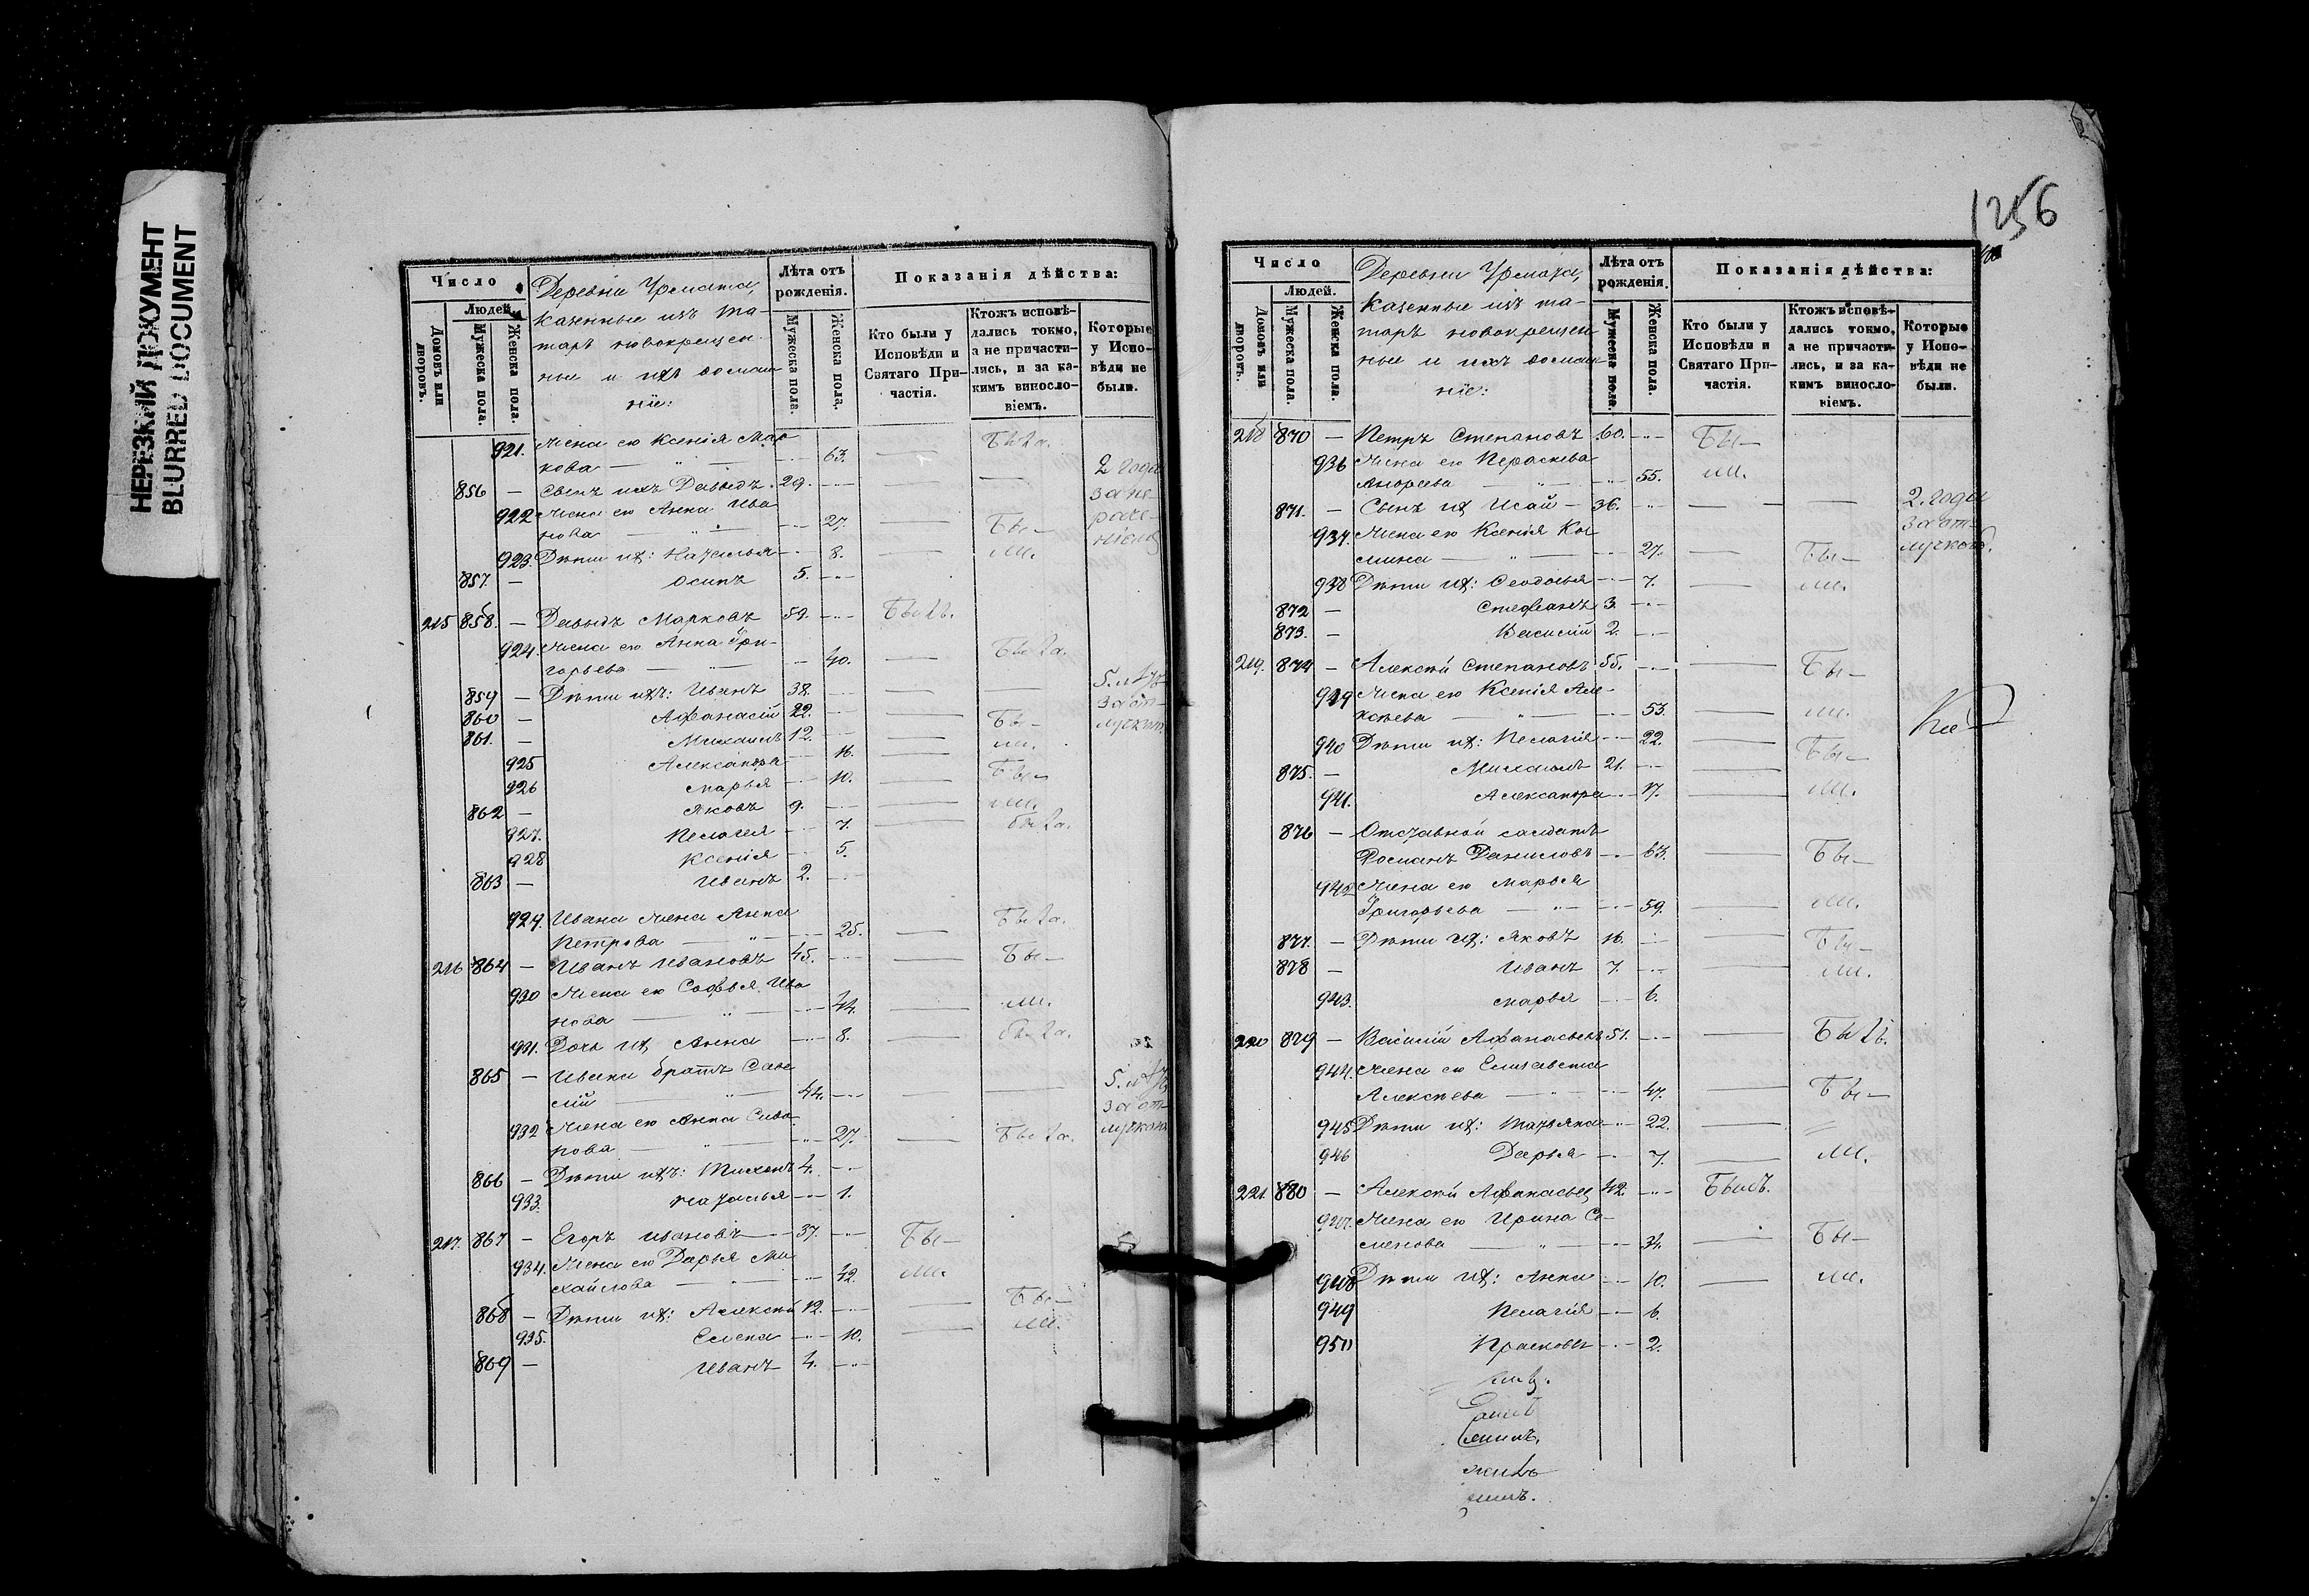 НЕРЕЗКИЙ ДОКУМЕНТ
BLURRED DOCUMENT
Число
Людей.
Домовъ или дворовъ.
Мужеска пола.
Женска пола.
Деревни Урмата,
казенные изъ та-
таръ новокрещен-
ные и ихъ домаш
ніе:
Лѣта отъ рожденія.
Мужеска пола.
Женска пола.
Показанія дѣйства:
Кто были у Исповѣди и Святаго При-частія.
Ктожъ исповѣ-дались токмо, а не причасти-лись, и за ка-кимъ винословіемъ.
Которые у Испо-вѣди не были.
921. Жена его Ксенія Мар
кова — 63. Была.
856 — Сынъ ихъ Давыдъ 29. 2 года
за не-
922 Жена его Анна Ива
нова — 27. Бы-
923. Дѣти ихъ: Наталья 8. ли.
857. — Осипъ 5.
215 858. — Давыдъ Марковъ 59. Былъ.
924. Жена его Анна Гри-
горьева — 40. Была.
859 — Дѣти ихъ: Иванъ 38.
за от-
860 — Афанасій 22. Бы-
861. — Михаилъ 12. ли.
925 Александра 16. Бы-
926 Марья 10.
862 — Яковъ 9. ли.
927. Пелагея 7. была.
928 Ксенія 5.
863 — Иванъ 2.
929. Ивана жена Анна
Петрова — 25. Была.
216 864 — Иванъ Ивановъ 45. Бы-
930 Жена его Софья Ива
нова — 44. ли.
931. Дочь ихъ Анна 8. была.
865 — Ивана братъ Саве
лій — 44.
за от-
лучкою
932 Жена его Анна
нова — 27. Была.
866 — Дѣти ихъ: Тихонъ 4.
933. Наталья 1.
217. 867 — Егоръ Ивановъ 37. Бы-
934. Жена его Дарья Ми
хайлова — 42. ли.
868 — Дѣти ихъ: Алексѣй 12. Бы-
935. Елена 10. ли.
869 — Иванъ 4.
1256
Число
Людей.
Домовъ или дворовъ.
Мужеска пола.
Женска пола.
Деревни Урмата,
казенные изъ та-
таръ новокрещен
ные и ихъ домаш
ніе:
Лѣта отъ рожденія.
Мужеска пола.
Женска пола.
Показанія дѣйства:
Кто были у Исповѣди и Святаго При-частія.
Ктожъ исповѣ-дались токмо, а не причасти-лись, и за ка-кимъ винословіемъ.
Которые у Испо-вѣди не были.
218 870 — Петръ Степановъ 60. Бы-
936 Жена его Параскева
Андреева — 55. ли.
871. — Сынъ ихъ Исай — 36. 2. года
за от-
лучкою.
937. Жена его Ксенія Ко
мина — 27. Бы-
938 Дѣти ихъ: Ѳеодосья 7. ли.
872 — Стефанъ 3.
873. — Василій 2.
219. 874 — Алексѣй Степановъ 55. Бы-
939 Жена его Ксенія Але-
ксѣева — 53. ли.
940 Дѣти ихъ: Пелагія 22. Бы-
875. — Михаилъ 21.
941. Александра 17. ли.
876 — Отставной солдатъ
Романъ Даниловъ 63. Бы-
942 Жена его Марья
Григорьева — 59. ли.
877. — Дѣти ихъ: Яковъ 16. Бы-
878 — Иванъ 7. ли.
943. Марья 6.
220 879 — Василій Афанасьевъ 51. Былъ.
944. Жена его Елизавета
Алексѣева — 47. Бы-
945 Дѣти ихъ: Татьяна 22.
946 Дарья 7. ли.
221. 880 — Алексѣй Афанасьевъ 42. Былъ.
947. Жена его Ирина Се-
менова — 34. Бы-
948 Дѣти ихъ: Анна 10. ли.
949 Пелагія 6.
950 Прасковья 2.